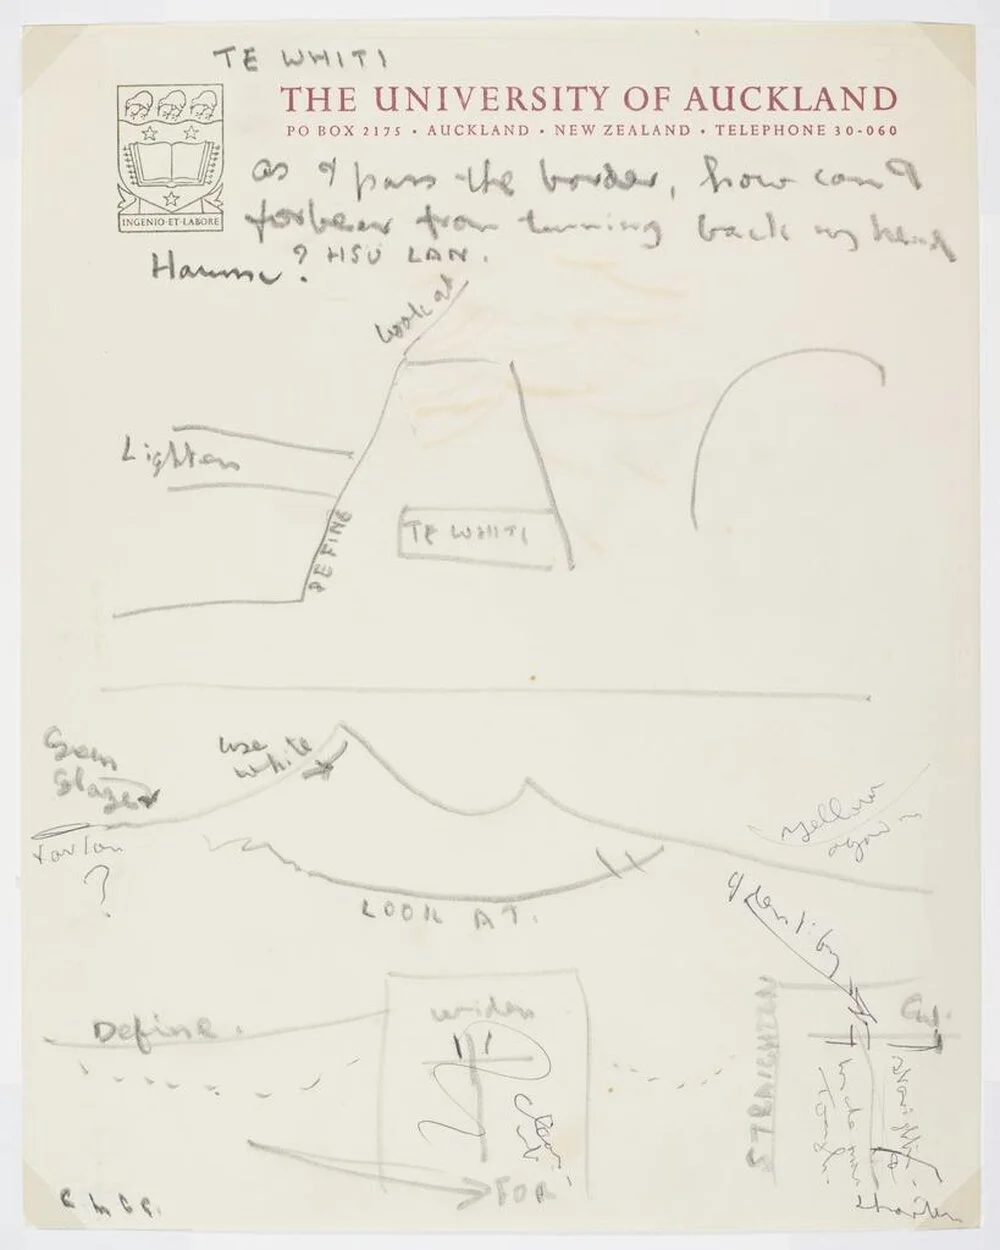 TE WHITI
THE UNIVERSITY OF AUCKLAND
PO BOX 2175 • AUCKLAND • NEW ZEALAND • TELEPHONE 30-060
INGENIO·ET·LABORE
as I pass the border, how can I
forbear from turning back my head
? HSU LAN.
Look at
Lighten
DEFINE
TE WHITI
use
white
?
yellow
again
LOOK AT.
Identity
Define.
widen
STRAIGHTEN
Cut.
FOR